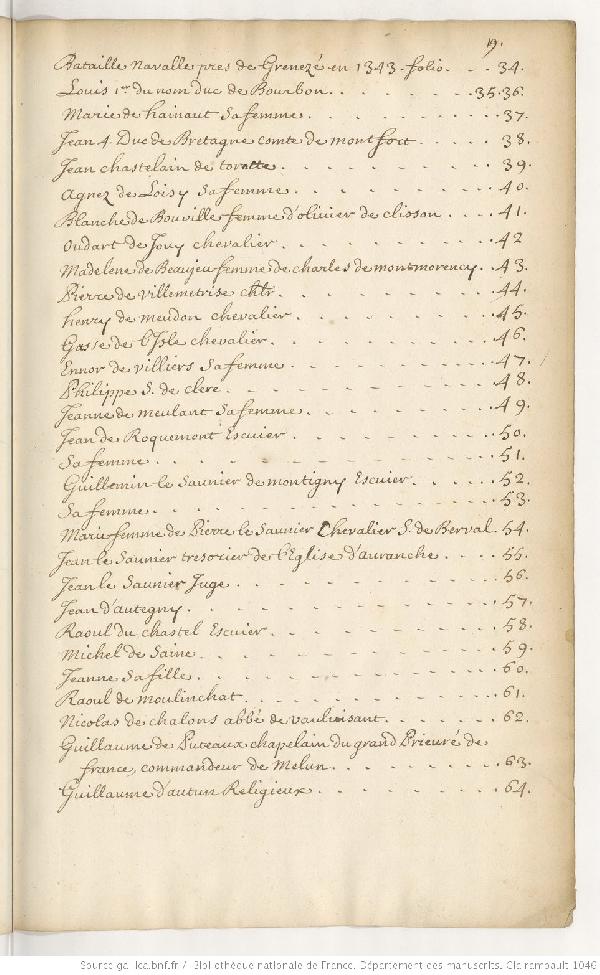 19.
Bataille navalle pres de Grenezé en 1343. folio . . . 34.
Louis 1er du nom Duc de Bourbon . . . . . . 35.36.
Marie de hainaut sa femme . . . . . . . 37.
Jean 4. Duc de Bretagne comte de montfort . . . . 38.
Jean chastelain de torotte . . . . . . . . 39.
agnez de Loisy sa femme . . . . . . . . 40.
Blanche de Bouville femme d'olivier de clisson . . . . 41.
oudart de Jouy chevalier . . . . . . . . 42
Madelene de Beaujeu femme de charles de montmorency . . 43.
Pierre de villemetrise chlr . . . . . . . . 44.
henry de meudon chevalier . . . . . . . . 45.
Gasse de l'Isle chevalier . . . . . . . . 46.
Ennor de villiers sa femme . . . . . . . . 47.
Philippe S. de clere . . . . . . . . . 48.
Jeanne de meulant sa femme . . . . . . . 49.
Jean de Roquemont Escuier . . . . . . . . 50.
sa femme . . . . . . . . . . . . 51.
Guillemin le saunier de montigny Escuier . . . . 52.
sa femme . . . . . . . . . . . . 53.
Marie femme de Pierre le saunier Chevalier S. de Berval . 54.
Jean le saunier tresorier de l'Eglise d'auranche . . . . 55.
Jean le saunier Juge . . . . . . . . . 56.
Jean d'autegny . . . . . . . . . . . 57.
Raoul du chastel Escuier . . . . . . . . 58.
Michel de Saine . . . . . . . . . . 59.
Jeanne sa fille . . . . . . . . . . . 60.
Raoul de moulinchat . . . . . . . . . 61.
Nicolas de chalons abbé de vauluisant . . . . . 62.
Guillaume de Puteaux chapelain du grand Prieuré de
france, commandeur de Melun . . . . . . . 63.
Guillaume d'autun Religieux . . . . . . . 64.
Source gallica.bnf.fr / Bibliothèque nationale de France. Département des manuscrits. Clairambault 1046